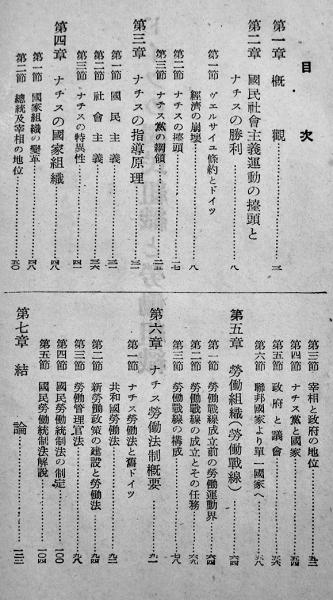 目次
第一章 概觀……一
第二章 國民社會主義運動の擡頭と
ナチスの勝利……八
第一節 ヴェルサイユ條約とドイツ
經濟の崩壞……八
第二節 ナチスの擡頭……一七
第三節 ナチス黨の綱領……二五
第三章 ナチスの指導原理……三一
第一節 國民主義……三一
第二節 社會主義……三六
第三節 ナチスの特異性……四一
第四章 ナチスの國家組織……四八
第一節 國家組織の變革……四八
第二節 總統及宰相の地位……五〇
第三節 宰相と政府の地位……五三
第四節 ナチス黨と國家……五四
第五節 政府と議會……五六
第六節 聯邦國家より單一國家へ……五八
第五章 勞働組織(勞働戰線)……六四
第一節 勞働戰線成立前の勞働運動界……六四
第二節 勞働戰線の成立とその任務……六九
第三節 勞働戰線の構成……七八
第六章 ナチス勞働法制概要……九一
第一節 ナチス勞働法と舊ドイツ
共和國勞働法……九一
第二節 新勞働政策の建設と勞働法……九二
第三節 勞働管理官法……九八
第四節 國民勞働統制法の制定……一〇〇
第五節 國民勞働統制法解說……一〇四
第七章 結論……一二三